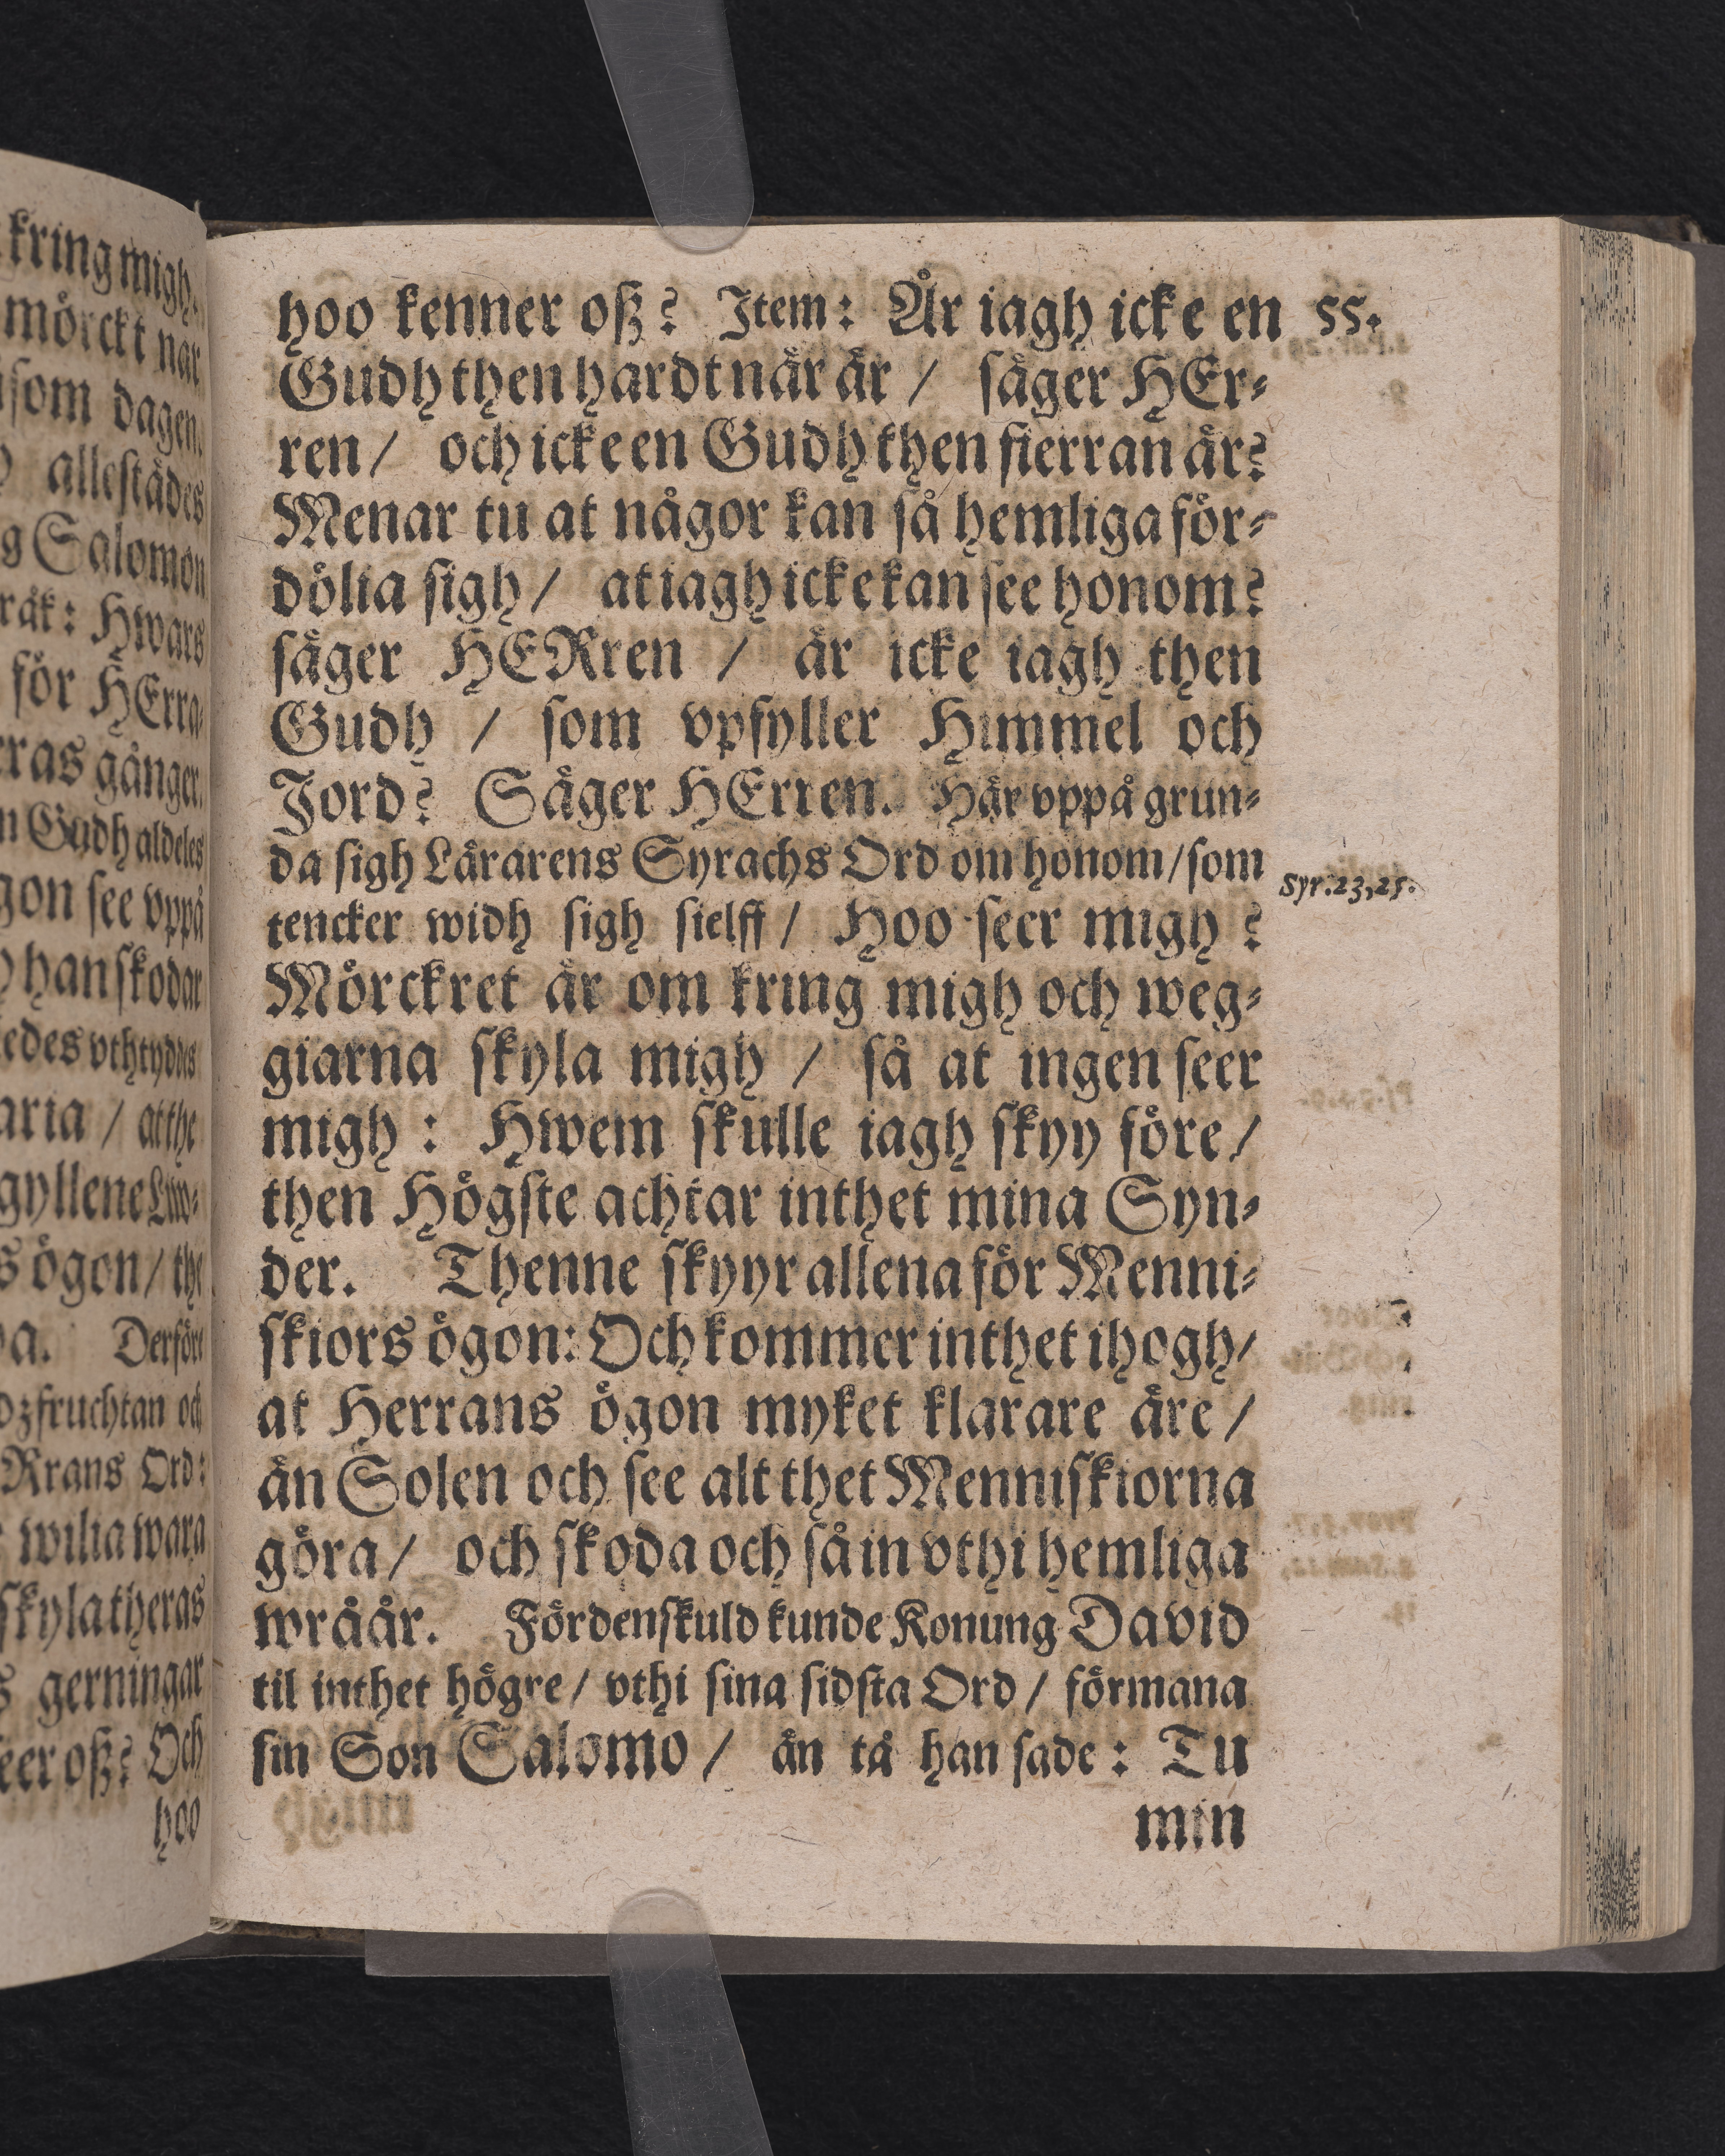 hoo kenner oß? Item: Är iagh icke en 55.
Gudh then hardt når år / såger HEr-
ren / och icke en Gudh then fierran år?
Menar tu at någor kan så hemliga för-
dölia sigh / at iagh icke kan see honom?
såger HERren / år icke iagh then
Gudh / som vpfyller Himmel och
Jord? Såger HErren. Hår vppå grun-
da sigh Lårarens Syrachs Ord om honom / som
Syr.23,25.
tencker widh sigh sielff / Hoo seer migh?
Mörckret år om kring migh och weg-
giarna skyla migh / så at ingen seer
migh: Hwem skulle iagh skyy före /
then Högste achtar inthet mina Syn-
der. Thenne skyyr allena för Menni-
skiors ögon: Och kommer inthet ihogh /
at Herrans ögon myket klarare åre /
ån Solen och see alt thet Menniskiorna
göra / och skoda och så in vthi hemliga
wråår. Fördenskuld kunde Konung David
til inthet högre / vthi sina sidsta Ord / förmana
sin Son Salomo / ån tå han sade: Tu
min
kring migh.
mörckt når
som dagen.
allestådes
Salomon
Hwars
för HErra-
gånger.
Gudh aldeles
see vppå
han skodar
/ at the
ögon / the
Derföre
och
Ord:
wilia wara
skyla theras
gerningar
oß? Och
hoo